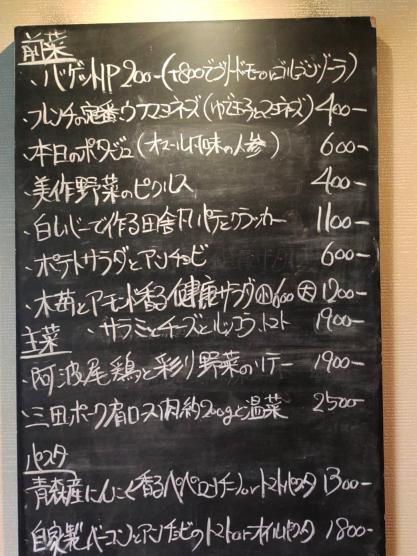 前菜
・バゲット1P 200-(+800でブリードモーorゴルゴンゾーラ)
・フレンチの定番ウフマヨネーズ(ゆで玉子とマヨネーズ) 400-
・本日のポタージュ(オマール風味の人参) 600-
・美作野菜のピクルス 400-
・白レバーで作る田舎風パテとクラッカー 1100-
・ポテトサラダとアンチョビ 600-
・木苺とアーモンド香る健康サラダ 小600 大1200-
・サラミとチーズとルッコラ、トマト 1900-
主菜
・阿波尾鶏と彩り野菜のソテー 1900-
・三田ポーク肩ロース肉約200gと温菜 2500-
パスタ
青森産にんにく香るペペロンチーノorトマトパスタ 1300-
自家製ベーコンとアンチョビのトマトorオイルパスタ 1800-